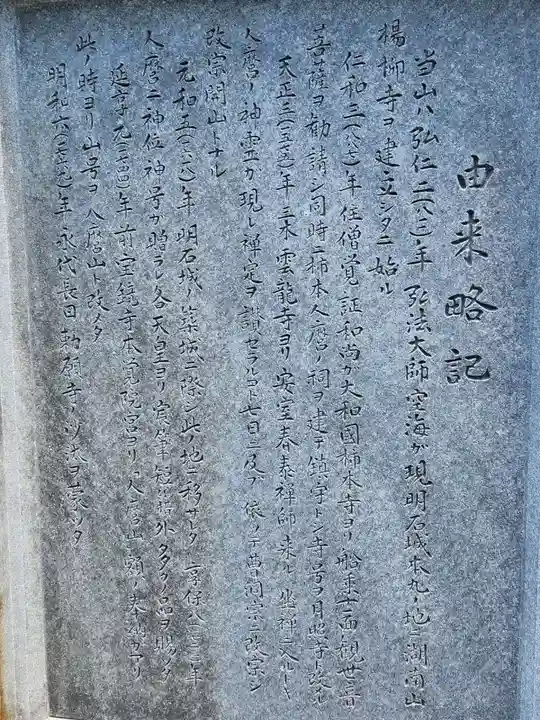 由来略記
当山ハ弘仁二(八一一)年 弘法大師空海ガ現明石城本丸ノ地ニ湖南山
楊柳寺ヲ建立シタニ始ル
仁和三(八八七)年住僧覚証和尚が大和國柿本寺ヨリ船乗十一面観世音
菩薩ヲ勧請シ同時ニ柿本人麿ノ祠ヲ建テ鎮守トシ寺号ヲ月照寺ト改ル
天正三(一五七五)年 三木雲龍寺ヨリ安室春泰禅師来ル 坐禅ニ入ルトキ
人麿ノ神霊ガ現レ禅定ヲ讃セラルコト七日ニ及ブ 依リテ曹洞宗ニ改宗シ
改宗開山トナル
元和三(一六一八)年明石城ノ築城ニ際シ此ノ地ニ移サレタ 享保八(一七二三)年
人麿ニ神位神号ガ贈ラレ各天皇ヨリ宸筆短冊外タクサン品ヲ賜ッタ
延享元(一七四四)年前宝鏡寺本覚院宮ヨリ「人麿山」額ノ奉納アリ
此ノ時ヨリ山号ヲ人麿山ト改メタ
明和六(一七六九)年永代長日勅願寺ノ沙汰ヲ蒙ッタ